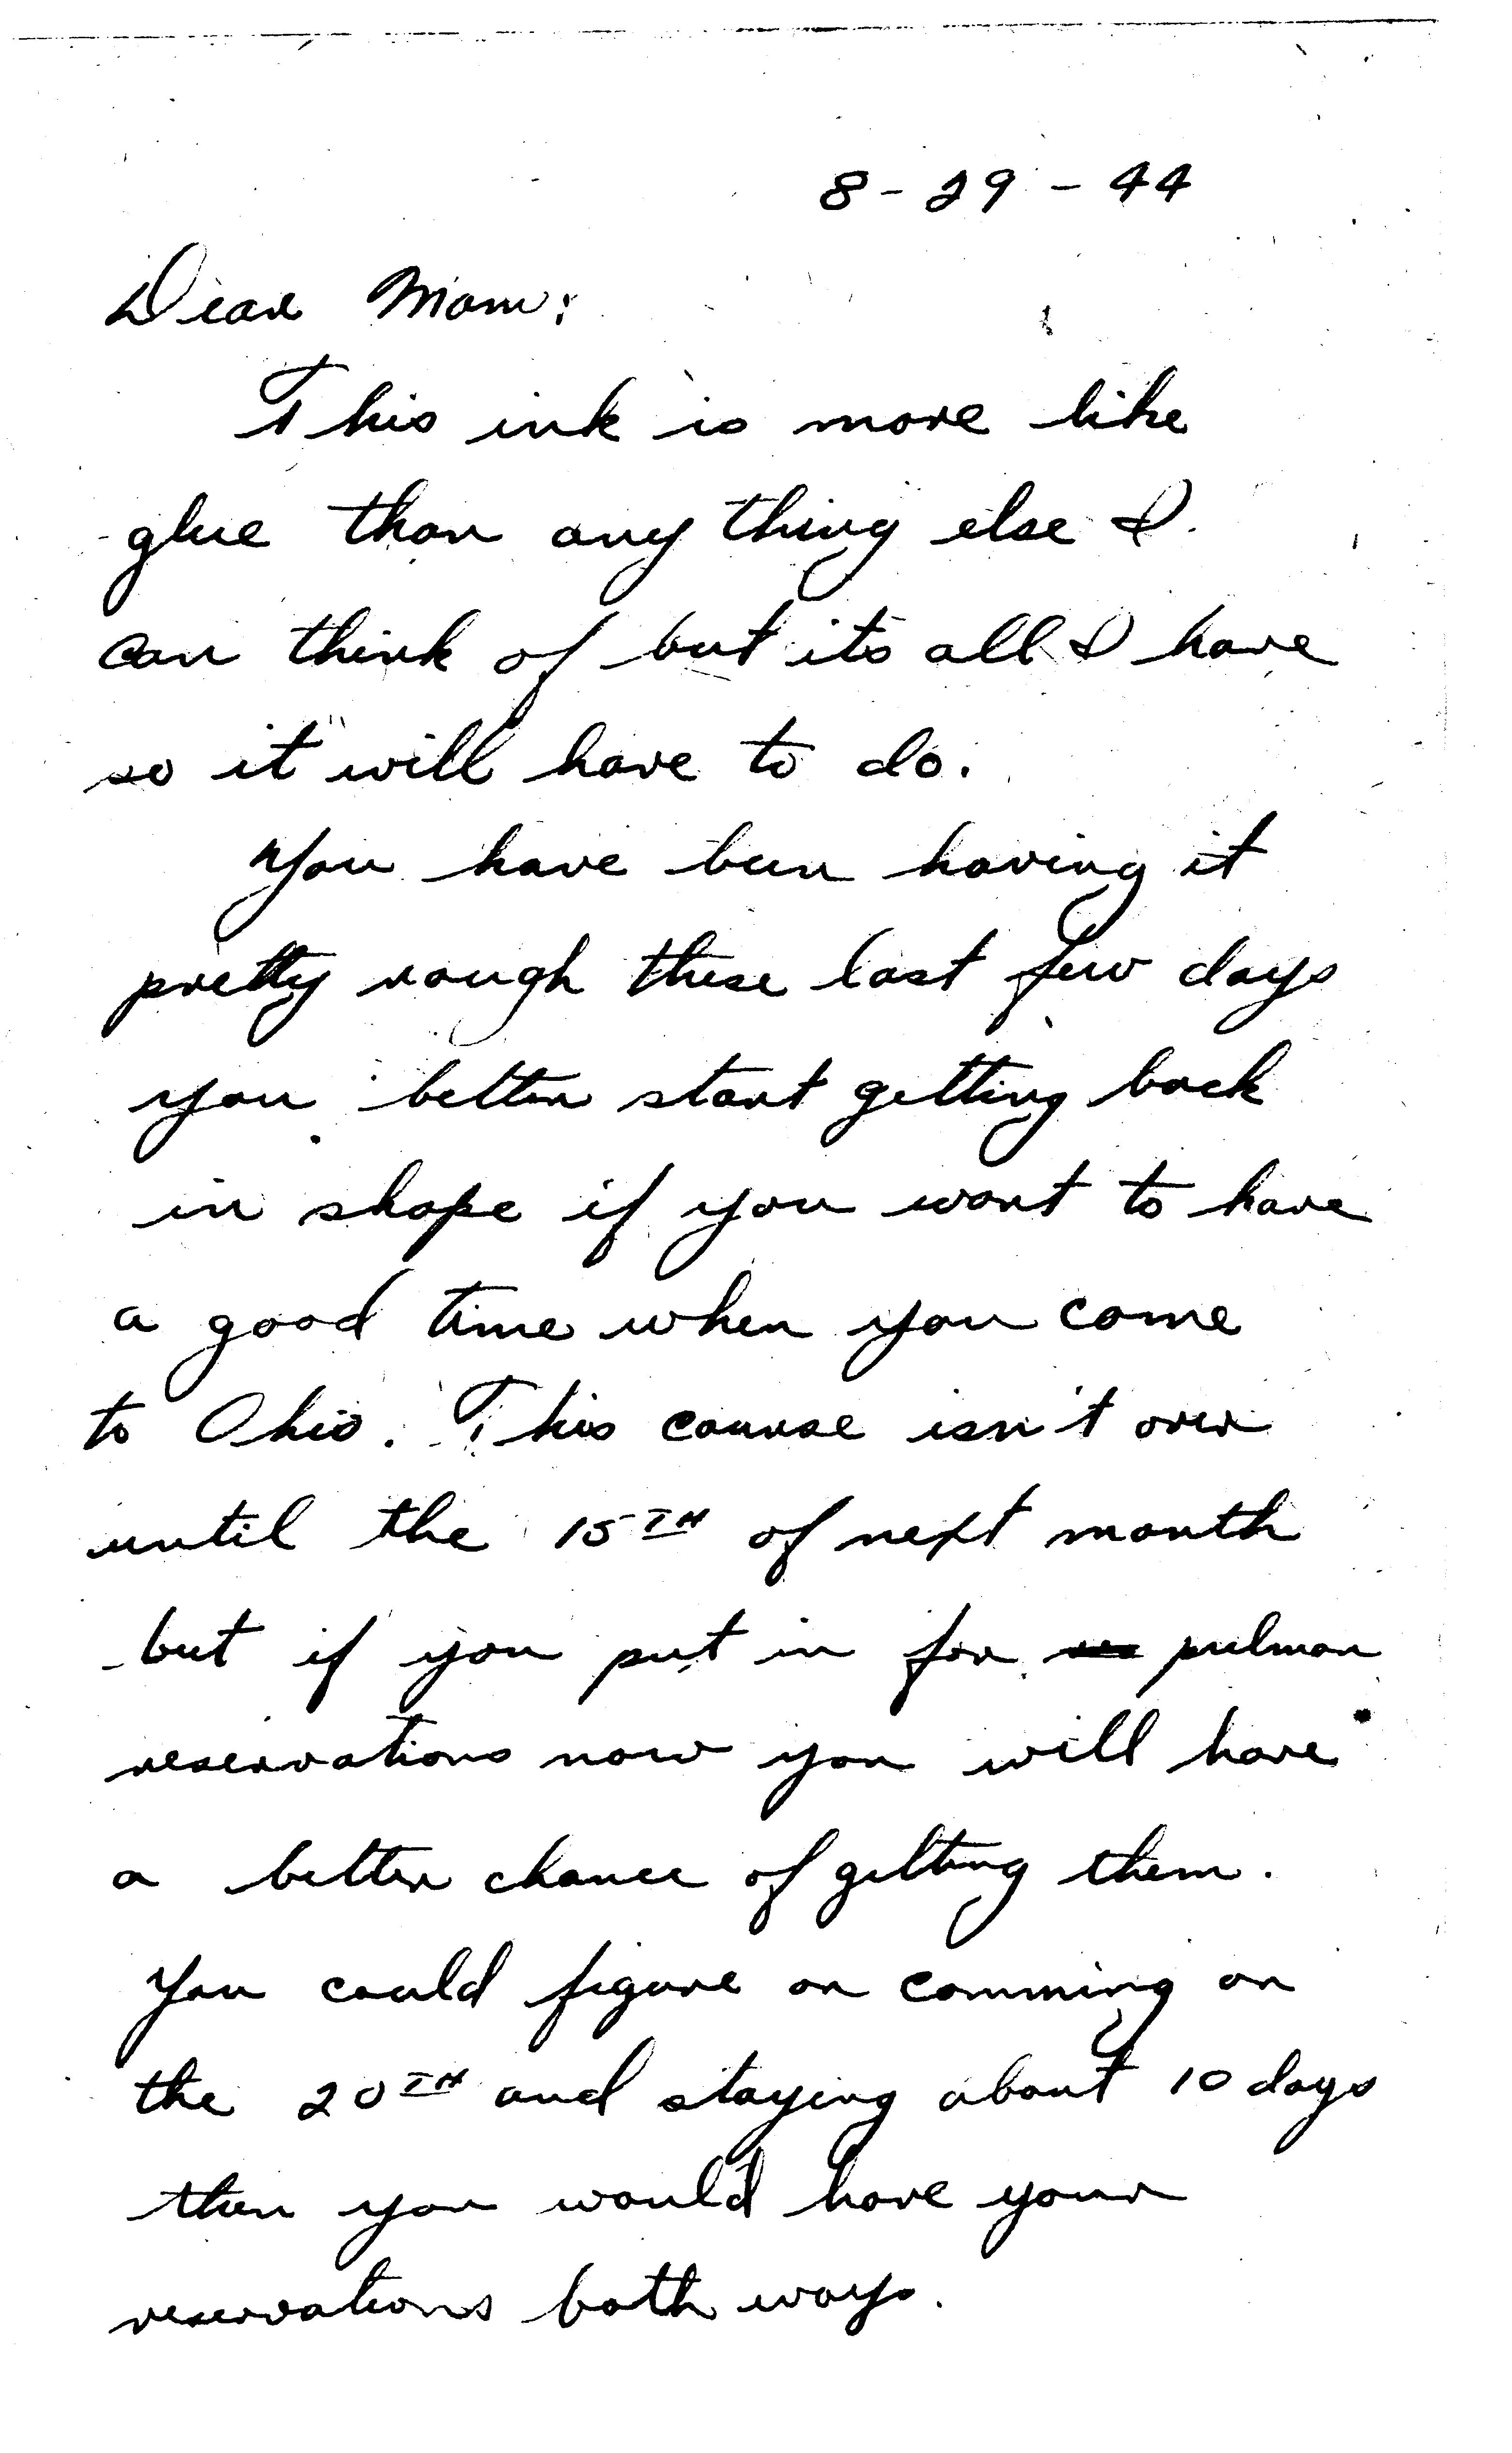 8-29-44
Dear Mom:
This ink is more like
glue than any thing else I
can think of but its all I have
so it will have to do.
You have been having it
pretty rough these last few days
you better start getting back
in shape if you want to have
a good time when you come
to Ohio. This course isn't over
until the 15TH of next month
but if you put in for pulman
reservations now you will have
a better chance of getting them.
You could figure on comming on
the 20TH and staying about 10 days
then you would have your
reservations both ways.